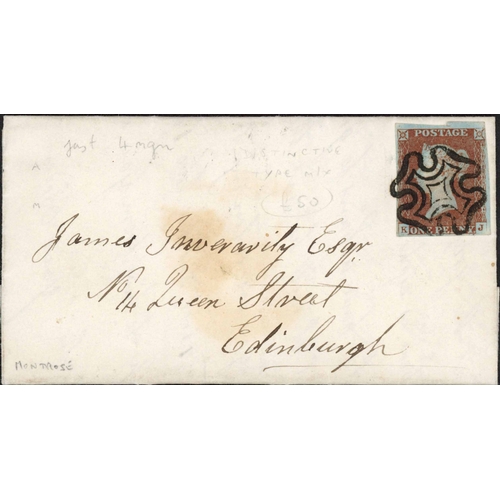 just 4 mgn
DISTINCTIVE
TYPE M/X
£50
POSTAGE
K ONE PENNY J
James Inverarity Esqr
No 14 Queen Street
Edinburgh
MONTROSE